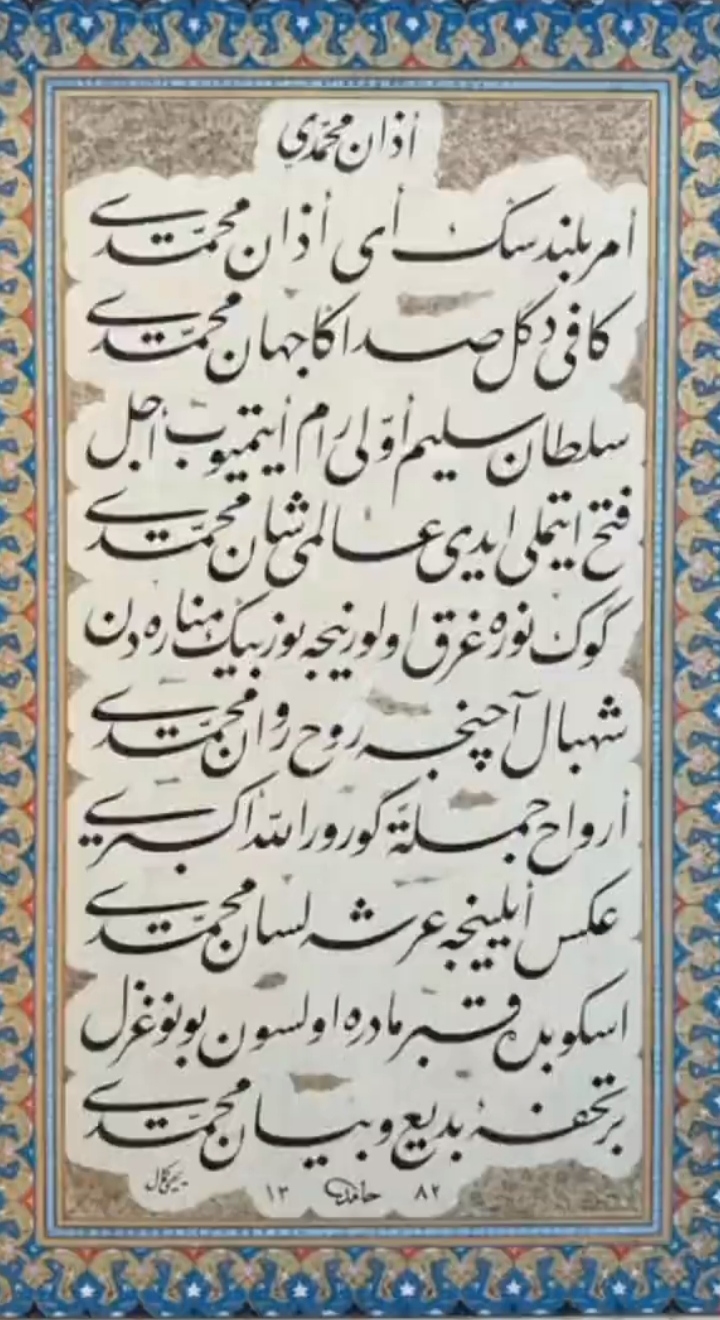 أذان محمدي
أمر بلندسك أى أذان محمّدى
كافى دگل صداكا جهان محمّدى
سلطان سليم أوّلى رام أيتميوب أجل
فتح ايتملى ايدى عالمى شان محمّدى
گوك نوره غرق اولور نيجه يوز بيك مناره دن
شهبال آچينجه روح روان محمّدى
أرواح جملةً گورور الله أكبرى
عكس أيلينجه عرشه لسان محمّدى
اسكوبده قبر مادره اولسون بو نو غزل
بر تحفۀ بديع و بيان محمّدى
يحيى كمال
حامد ١٣٨٢